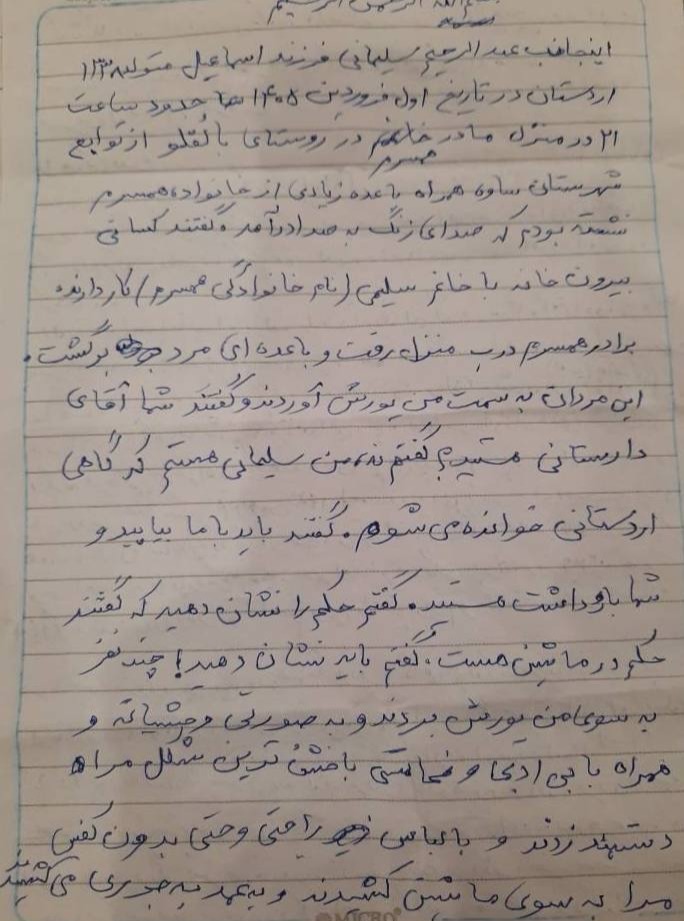 بسم الله الرحمن الرحیم
اینجانب عبدالرحیم سلیمانی فرزند اسماعیل متولد ۱۳۳۸
اردستان در تاریخ اول فروردین ۱۴۰۵ حدود ساعت
۲۱ در منزل مادر خانم در روستای از توابع
همسرم
شهرستان ساوه همراه با عده زیادی از خانواده همسرم
نشسته بودم که صدای زنگ به صدا درآمد، گفتند کسانی
بیرون خانه با خانم سلیمی (نام خانوادگی همسرم) کار دارند
برادر همسرم درب منزل رفت و با عده ای مرد برگشت.
این مردان به سمت من یورش آوردند و گفتند شما آقای
دارستانی هستید؟ گفتم نه، من سلیمانی هستم که گاهی
اردستانی خوانده می شوم. گفتند باید با ما بیایید و
شما بازداشت هستید. گفتم حکم را نشان دهید که گفتند
حکم در ماشین هست. گفتم باید نشان دهید! چند نفر
به سوی من یورش بردند و به صورتی وحشیانه و
همراه با بی ادبی و فحاشی با خشن ترین شکل مرا
دستبند زدند و با لباس راحتی و حتی بدون کفش
مرا به سوی ماشین کشیدند و به عمد به جوری می کشیدند
MICRO